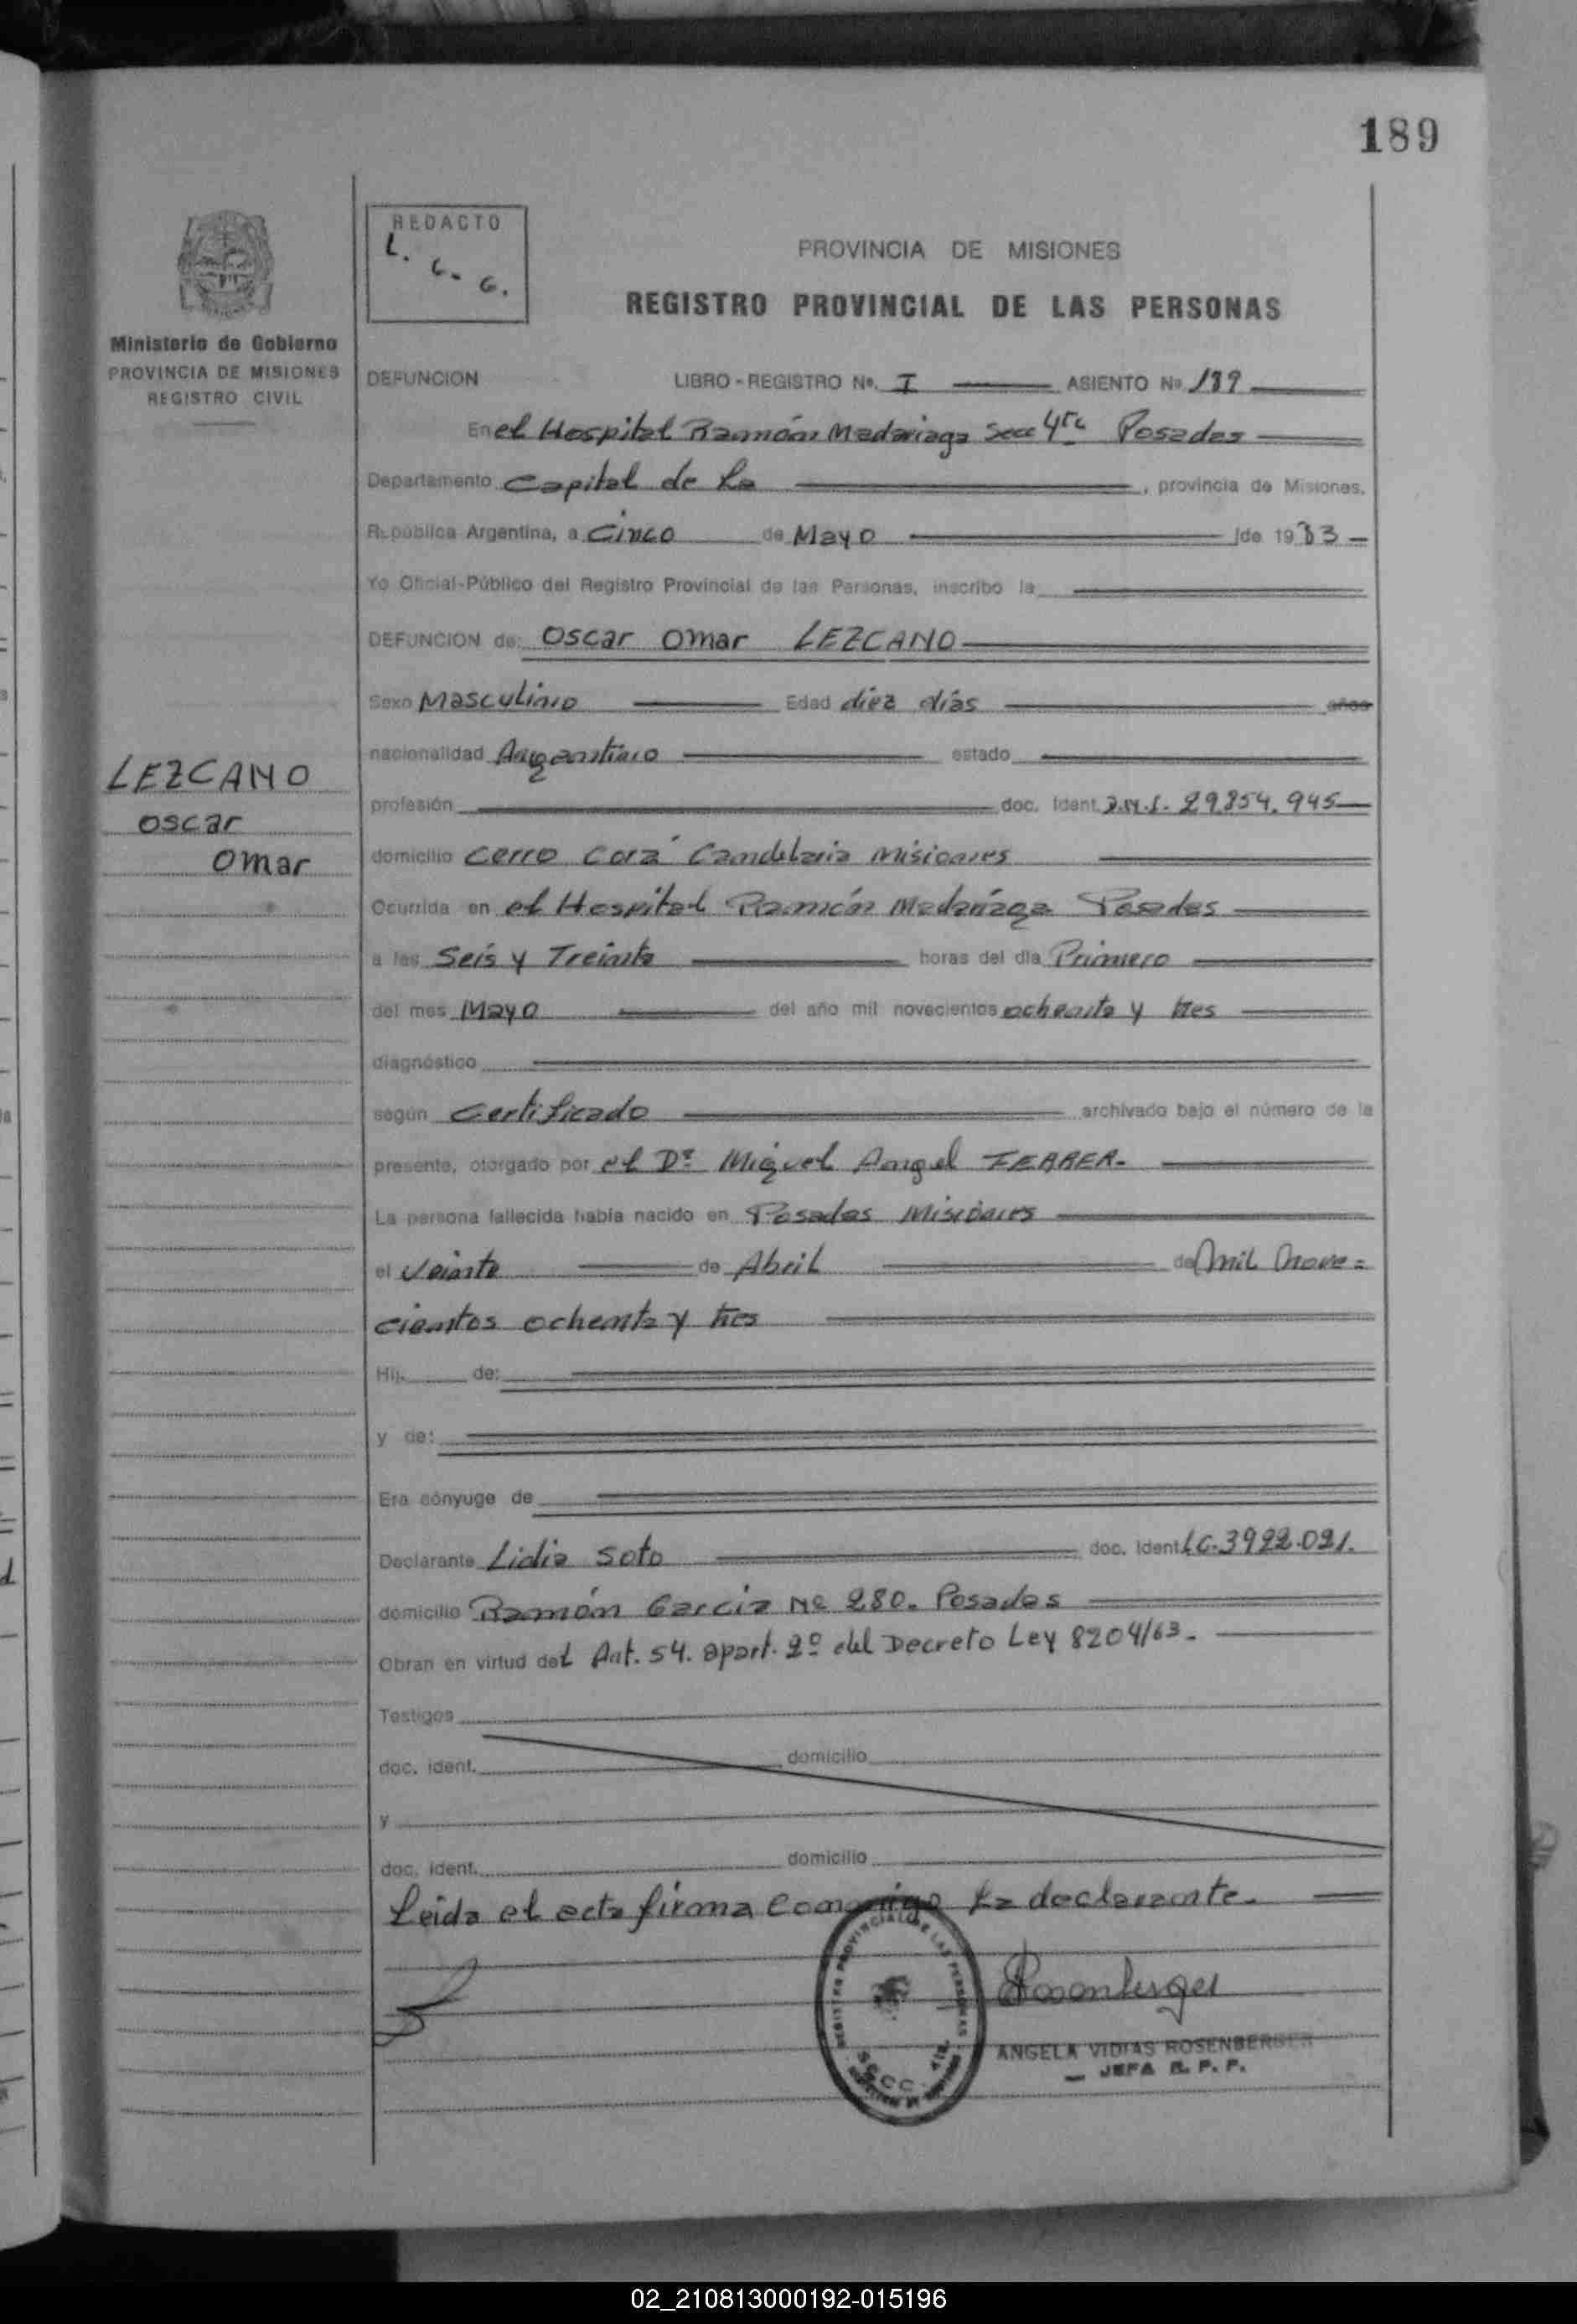 189
REDACTO
L. C. G.
PROVINCIA DE MISIONES
REGISTRO PROVINCIAL DE LAS PERSONAS
Ministerio de Gobierno
PROVINCIA DE MISIONES
REGISTRO CIVIL
DEFUNCION LIBRO - REGISTRO Nº. I ASIENTO Nº 189
En el Hospital Ramón Madariaga Secc 4ta Posadas
Departamento Capital de la , provincia de Misiones,
República Argentina, a Cinco de Mayo de 1983
Yo Oficial-Público del Registro Provincial de las Personas, inscribo la
DEFUNCION de: Oscar Omar LEZCANO
Sexo Masculino Edad diez días años
nacionalidad Argentino estado
LEZCANO
Oscar
Omar
profesión doc. Ident. D.N.I. 29854.945
domicilio Cerro Corá Candelaria Misiones
Ocurrida en el Hospital Ramón Madariaga Posadas
a las Seis y Treinta horas del día Primero
del mes Mayo del año mil novecientos ochenta y tres
diagnóstico
según Certificado archivado bajo el número de la
presente, otorgado por el Dr. Miguel Angel FERRER.
La persona fallecida había nacido en Posadas Misiones
el Veinte de Abril de mil nove=
cientos ochenta y tres
Hij. de:
y de:
Era cónyuge de
Declarante Lidia Soto doc. Ident. LC.3922.021.
domicilio Ramón Garcia Nº 280. Posadas
Obran en virtud del Art. 54. apart. 2º del Decreto Ley 8204/63.
Testigos
doc. ident. domicilio
y
doc. ident. domicilio
Leida el acta firma Conmigo la declarante.
REGISTRO PROVINCIAL DE LAS PERSONAS
Rosenberger
ANGELA VIDIAS ROSENBERGER
JEFA R. P. P.
02_210813000192-015196